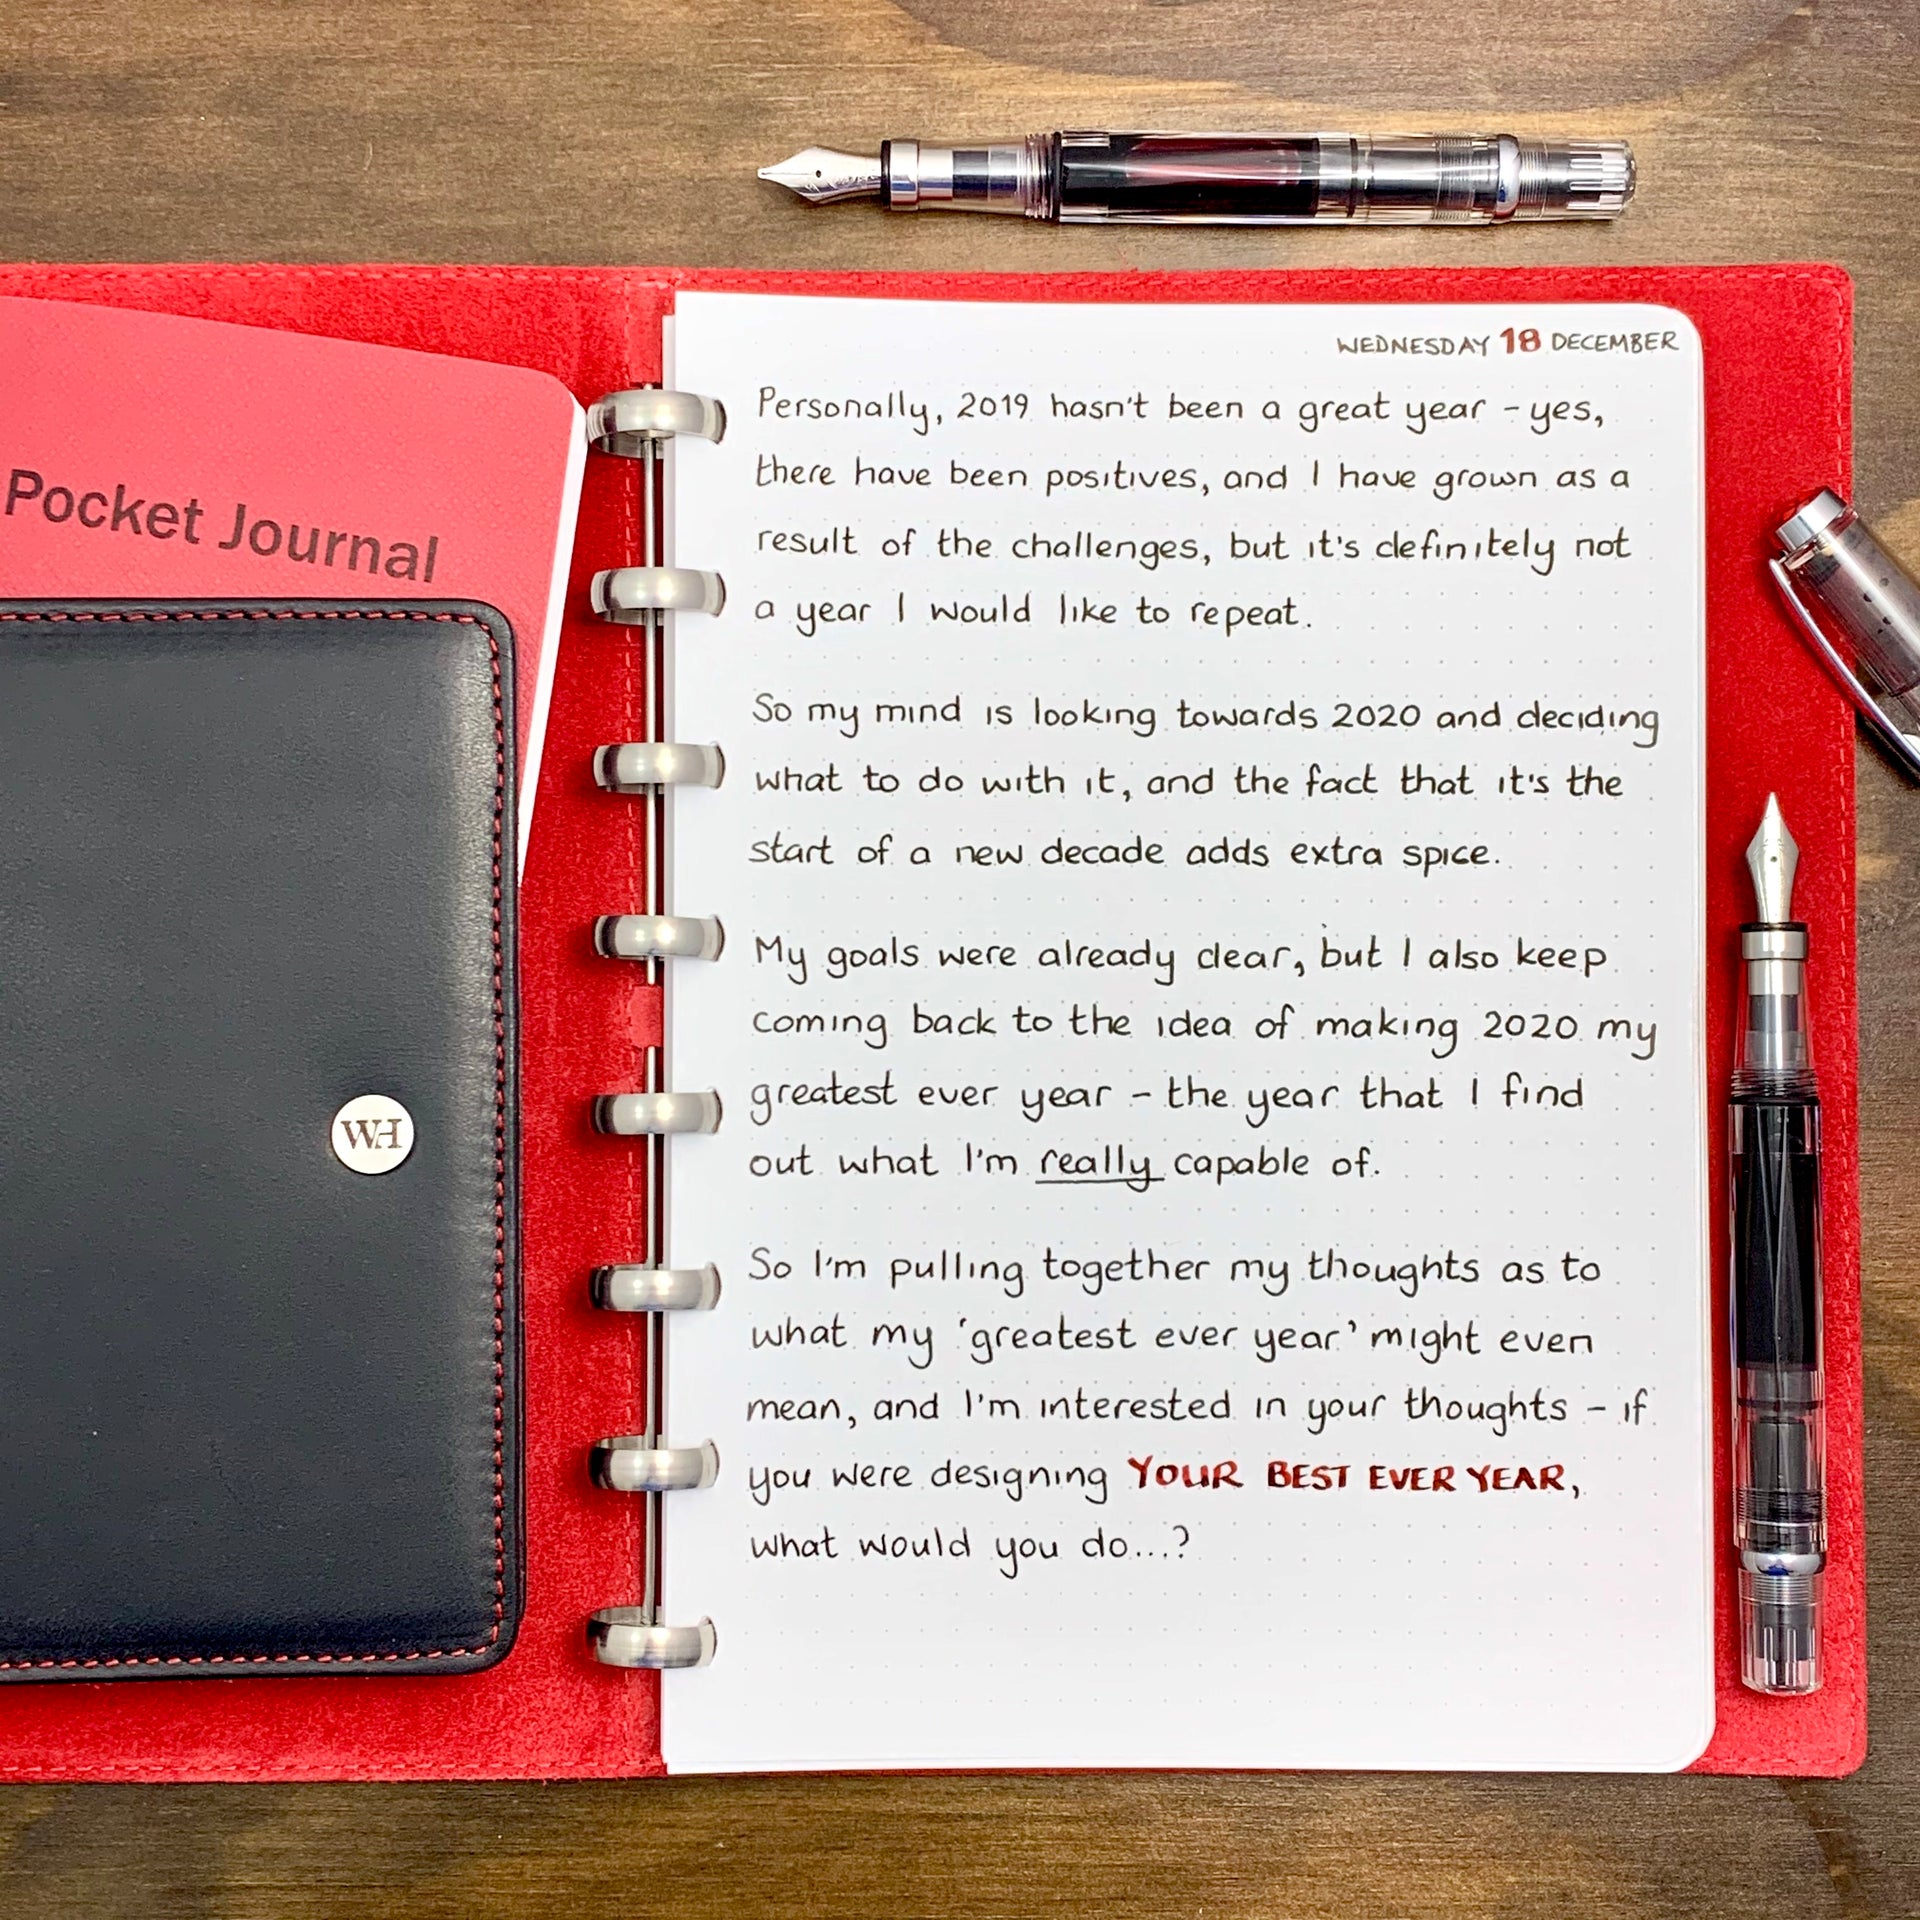 WEDNESDAY 18 DECEMBER
Personally, 2019 hasn't been a great year - yes,
there have been positives, and I have grown as a
result of the challenges, but it's definitely not
a year I would like to repeat.
So my mind is looking towards 2020 and deciding
what to do with it, and the fact that it's the
start of a new decade adds extra spice.
My goals were already clear, but I also keep
coming back to the idea of making 2020 my
greatest ever year - the year that I find
out what I'm really capable of.
So I'm pulling together my thoughts as to
what my 'greatest ever year' might even
mean, and I'm interested in your thoughts - if
you were designing YOUR BEST EVER YEAR,
what would you do...?
Pocket Journal
WH